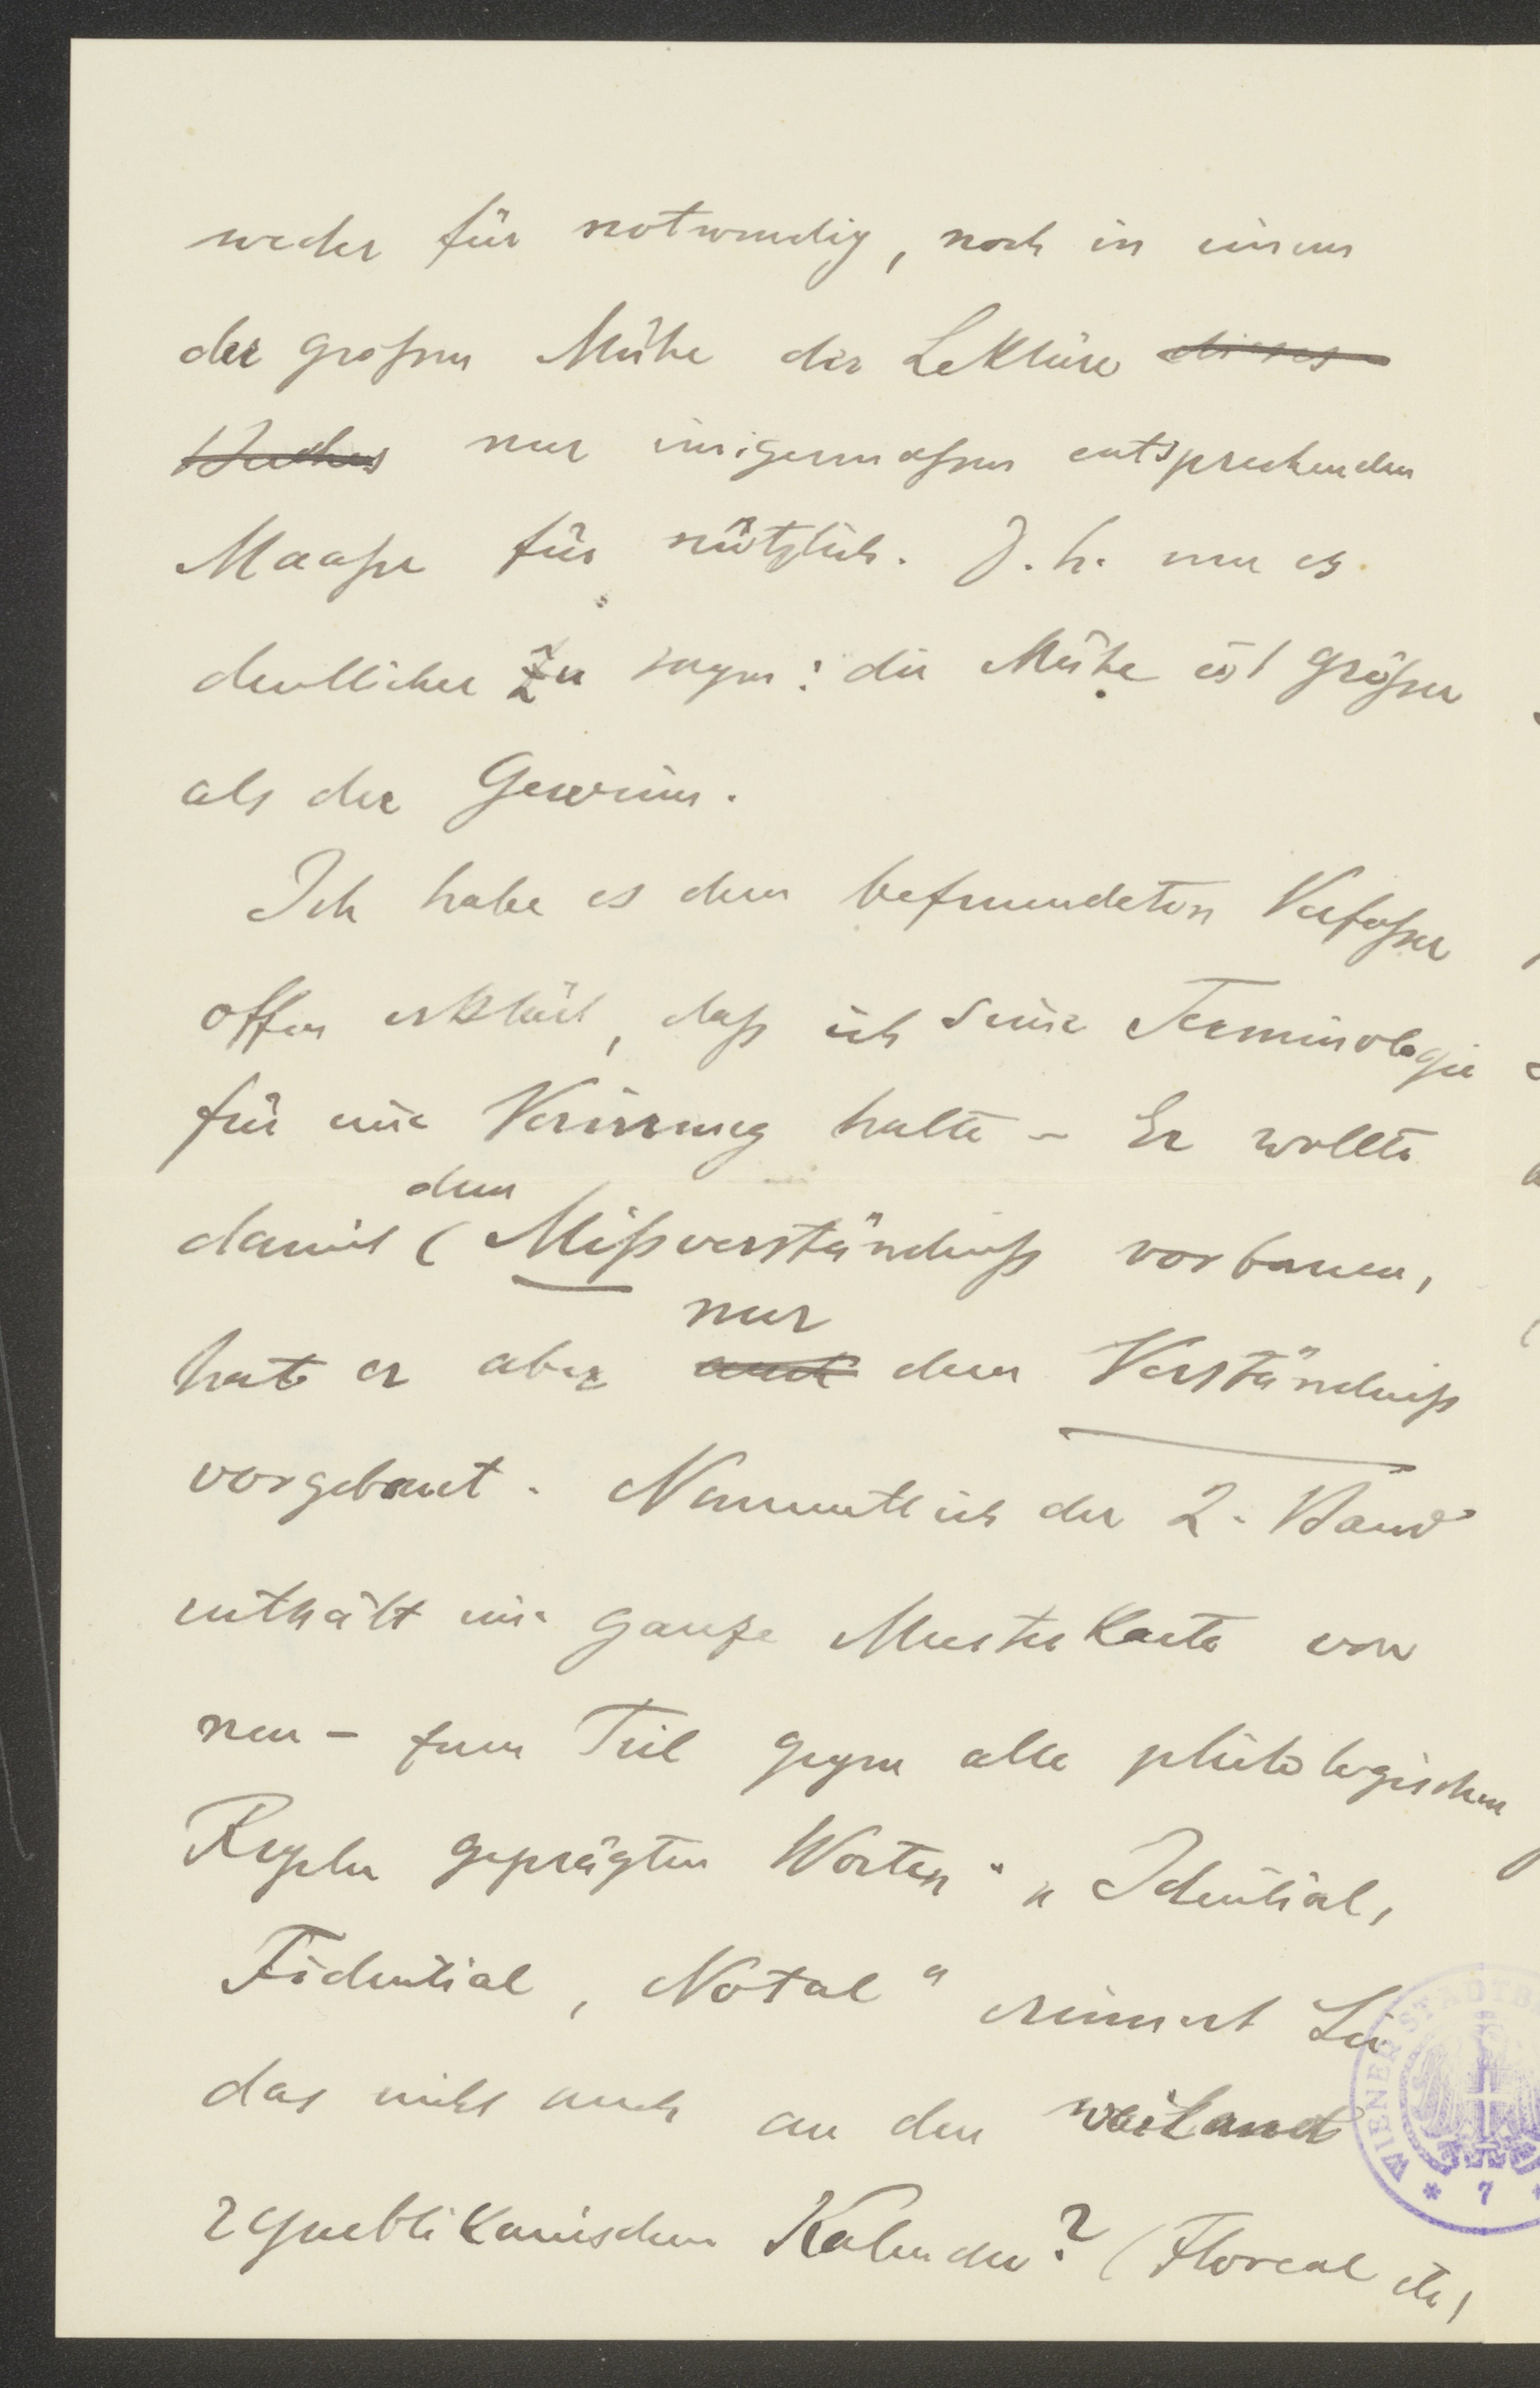 weder für notwendig, noch in einem
der großen Mühe der Lektüre dieses
Buches nur einigermaßen entsprechenden
Maaße für nützlich. D. h. um es
deutlicher zu sagen: die Mühe ist größer
als der Gewinn.
Ich habe es dem befreundeten Verfaßer
offen erklärt, daß ich seine Terminologie
für eine Verirrung halte – Er wollte
dem
damit ( Mißverständniß vorbauen,
nur
hat er aber auch dem Verständniß
vorgebaut. Namentlich der 2. Band
enthält eine ganze Musterkarte von
neu – zum Teil gegen alle philologischen
Regeln geprägten Worten „Idential,
Fidential, Notal“ erinnert Sie
das nicht auch an den weiland
republikanischen Kalender? (Floreal etc)
WIENER STADTB
* 7 *